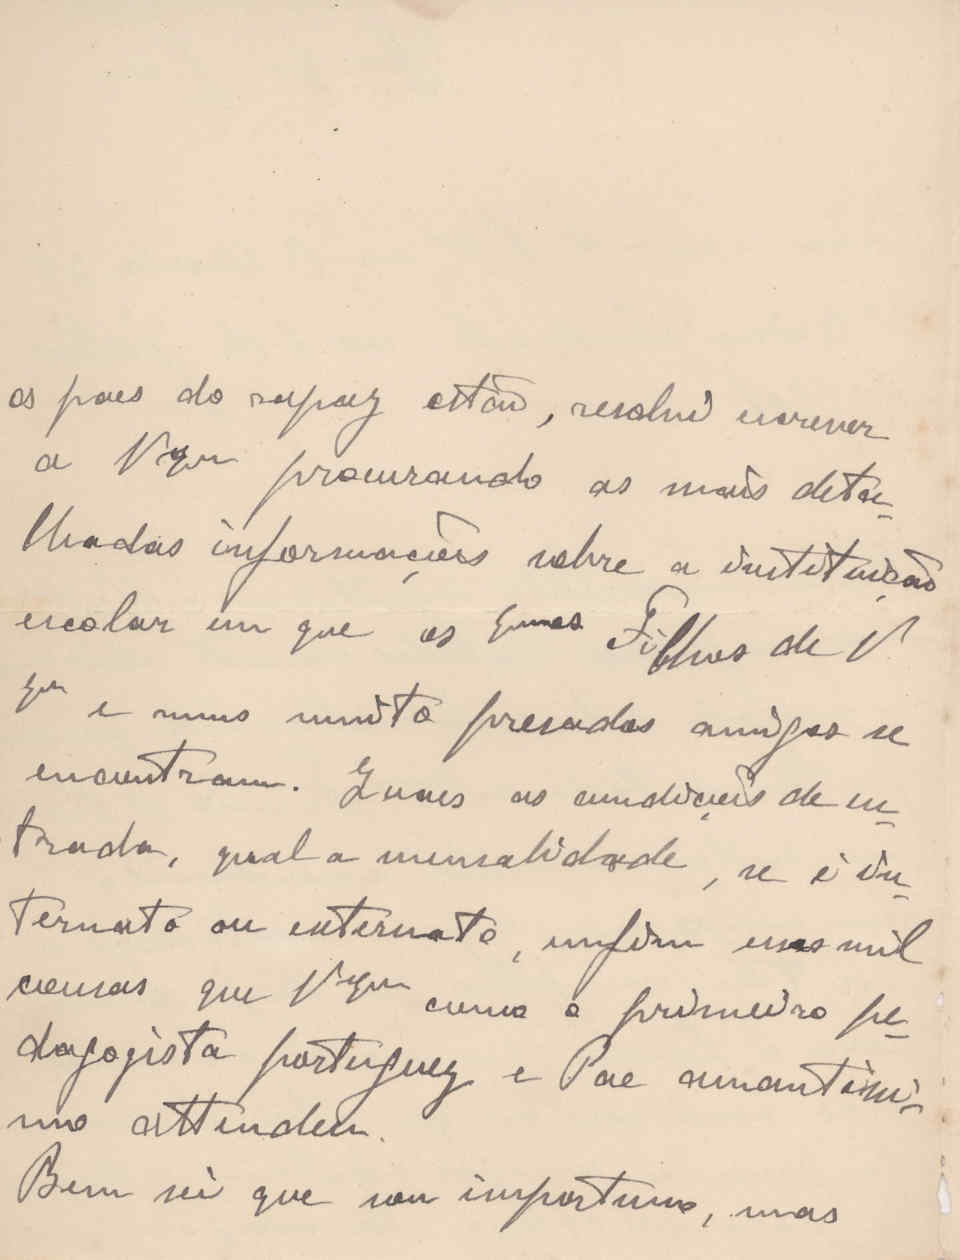 os paes do rapaz estão, resolvi escrever
a V Exª procurando as mais deta-
lhadas informações sobre a instituição
escolar em que os Exmos Filhos de V
Exª e meus muito presados amigos se
encontram. Quaes as condições de en-
trada, qual a mensalidade, se é in-
ternato ou externato, emfim essas mil
cousas que V Exª como o primeiro pe-
dagogista portuguez e Pae amantissi-
mo attendeu.
Bem sei que sou importuno, mas